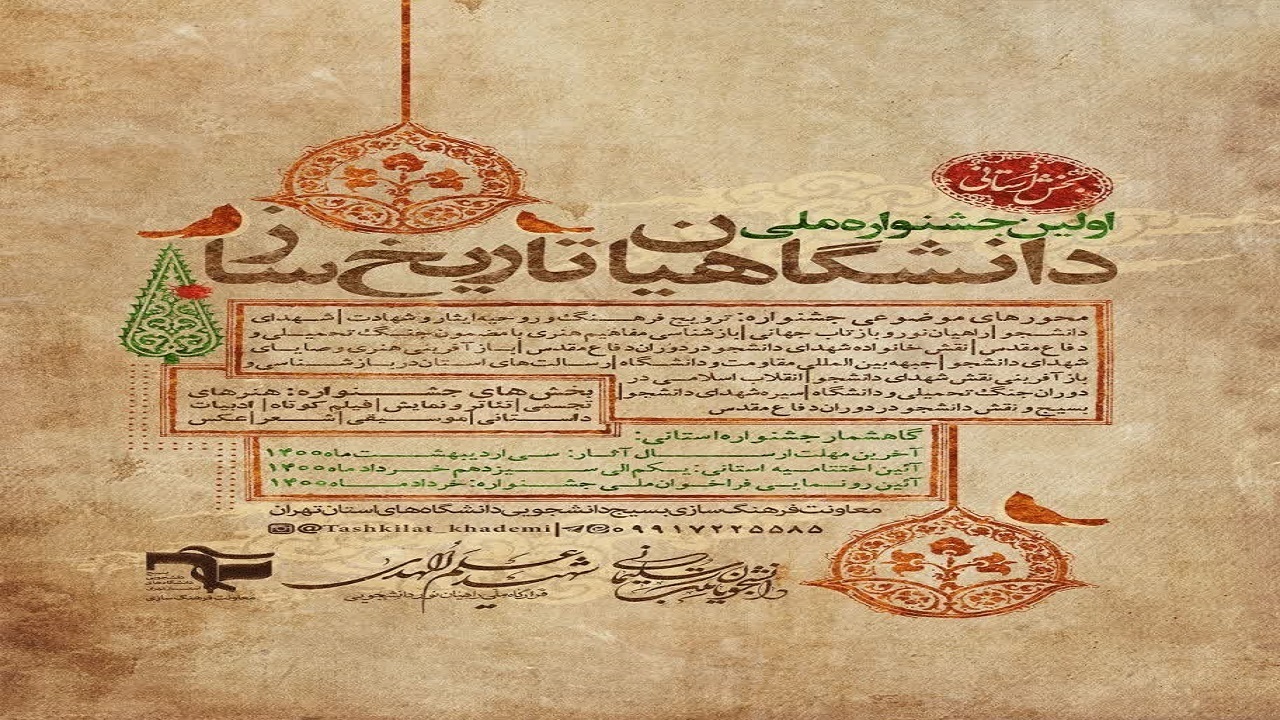 بخش استانی
اولین جشنواره ملی
دانشگاهیان تاریخ ساز
محورهای موضوعی جشنواره: ترویج فرهنگ و روحیه ایثار و شهادت | شهدای
دانشجو | راهیان نور و بازتاب جهانی | بازشناسی مفاهیم هنری با مضمون جنگ تحمیلی و
دفاع مقدس | نقش خانواده شهدای دانشجو در دوران دفاع مقدس | بازآفرینی هنری وصایای
شهدای دانشجو | جبهه بین المللی مقاومت و دانشگاه | رسالت های استان در بازشناسی و
بازآفرینی نقش شهدای دانشجو | انقلاب اسلامی در
دوران جنگ تحمیلی و دانشگاه | سیره شهدای دانشجو |
بسیج و نقش دانشجو در دوران دفاع مقدس
بخش های جشنواره: هنرهای
تجسمی | تئاتر و نمایش | فیلم کوتاه | ادبیات
داستانی | موسیقی | شعر | عکس
گاهشمار جشنواره استانی:
آخرین مهلت ارسال آثار: سی اردیبهشت ماه ۱۴۰۰
آئین اختتامیه استانی: یکم الی سیزدهم خرداد ماه ۱۴۰۰
آئین رونمایی فراخوان ملی جشنواره: خرداد ماه ۱۴۰۰
معاونت فرهنگ سازی بسیج دانشجویی دانشگاه های استان تهران
@Tashkilat_khademi | ۰۹۹۱۷۲۲۵۵۸۵
دانشجویان مکتب سلیمانی
شهید علم الهدی
قرارگاه ملی راهیان نور دانشجویی
معاونت فرهنگ سازی